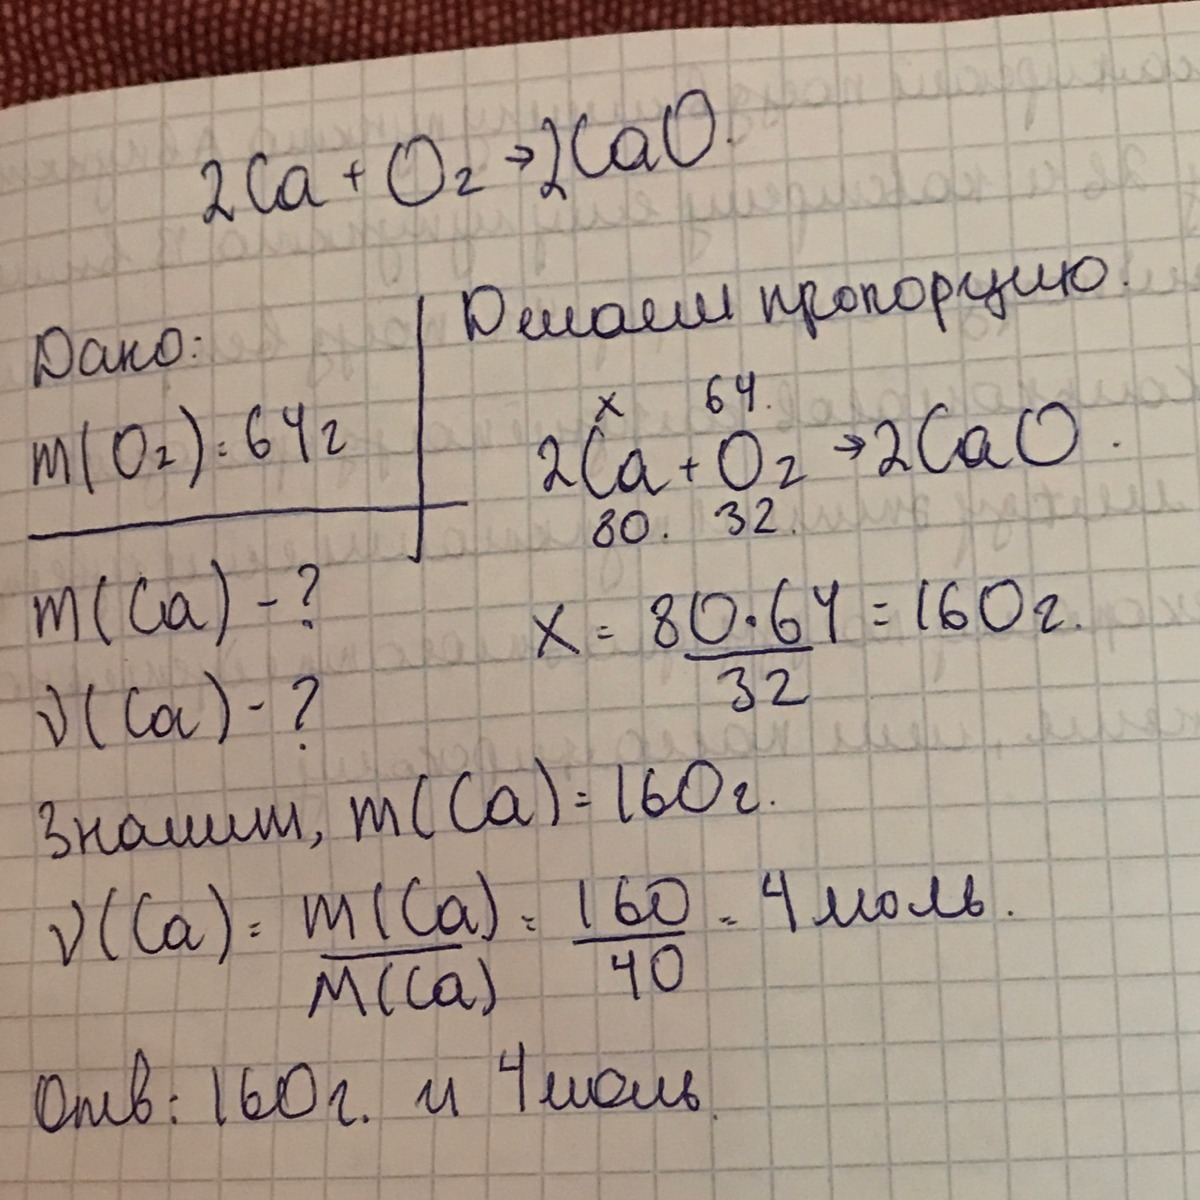 2Ca + O₂ → 2CaO.
Дано:
m(O₂) = 64г
m(Ca) - ?
ν(Ca) - ?
Делаем пропорцию.
x 64.
2Ca + O₂ → 2CaO.
80. 32.
x = 80·64 / 32 = 160г.
Значит, m(Ca) = 160г.
ν(Ca) = m(Ca) / M(Ca) = 160 / 40 = 4 моль.
Отв: 160г. и 4 моль.